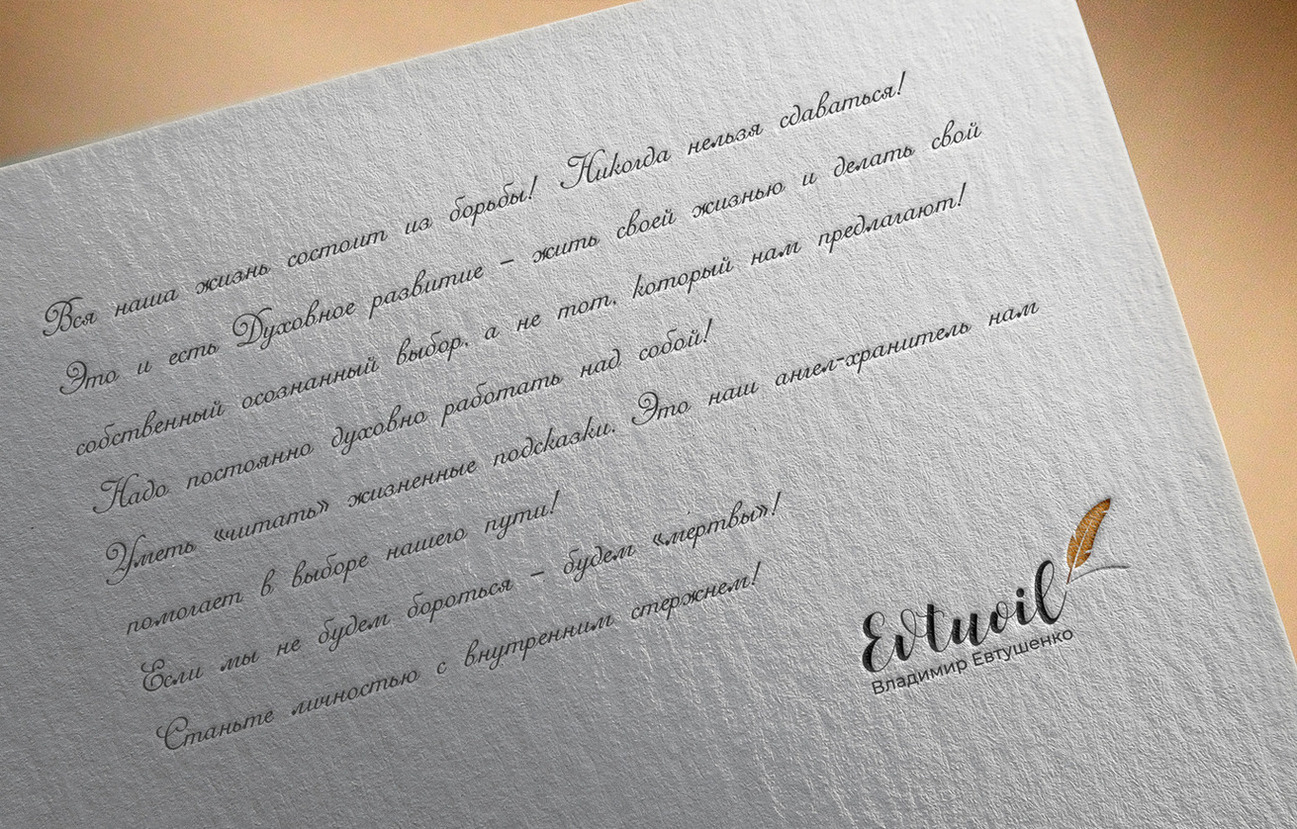 Вся наша жизнь состоит из борьбы! Никогда нельзя сдаваться!
Это и есть Духовное развитие – жить своей жизнью и делать свой
собственный осознанный выбор, а не тот, который нам предлагают!
Надо постоянно духовно работать над собой!
Уметь «читать» жизненные подсказки. Это наш ангел-хранитель нам
помогает в выборе нашего пути!
Если мы не будем бороться – будем «мертвы»!
Станьте личностью с внутренним стержнем!
Evtuvil
Владимир Евтушенко